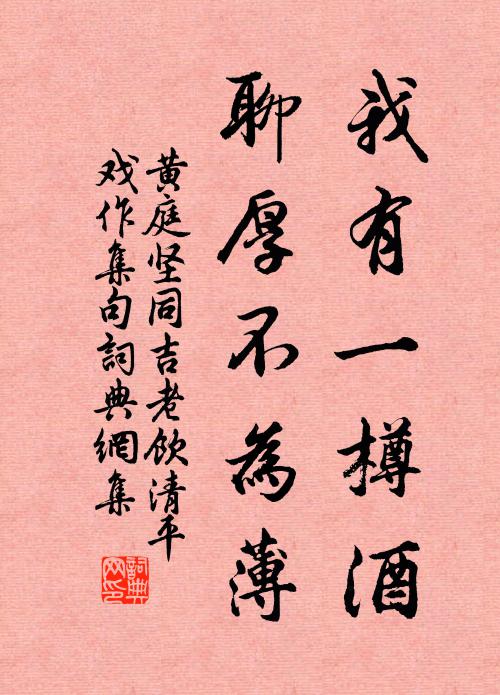 我有一樽酒
聊厚不為薄
黄庭坚同吉老饮清平
戏作集句詞典網集
詞典
网印